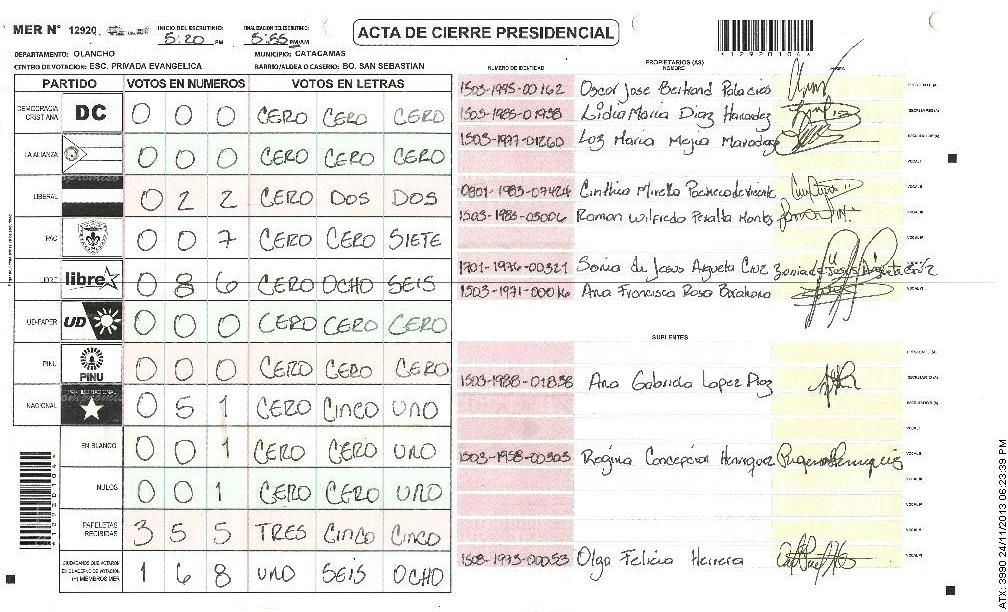 MER N° 12920
INICIO DEL ESCRUTINIO: 5:20 PM
FINALIZACION DEL ESCRUTINIO: 5:55 PM/AM
ACTA DE CIERRE PRESIDENCIAL
DEPARTAMENTO: OLANCHO MUNICIPIO: CATACAMAS
CENTRO DE VOTACION: ESC. PRIVADA EVANGELICA BARRIO/ALDEA O CASERIO: BO. SAN SEBASTIAN
PARTIDO VOTOS EN NUMEROS VOTOS EN LETRAS
DEMOCRACIA CRISTIANA DC 0 0 0 CERO CERO CERO
LA ALIANZA 0 0 0 CERO CERO CERO
LIBERAL 0 2 2 CERO DOS DOS
PAC 0 0 7 CERO CERO SIETE
LIBRE libre 0 8 6 CERO OCHO SEIS
UD-FAPER UD 0 0 0 CERO CERO CERO
PINU PINU 0 0 0 CERO CERO CERO
NACIONAL 0 5 1 CERO CINCO UNO
EN BLANCO 0 0 1 CERO CERO UNO
NULOS 0 0 1 CERO CERO UNO
PAPELETAS RECIBIDAS 3 5 5 TRES CINCO CINCO
CIUDADANOS QUE VOTARON EN CUADERNO DE VOTACION (+) MIEMBROS MER 1 6 8 UNO SEIS OCHO
NUMERO DE IDENTIDAD PROPIETARIOS (AS) NOMBRE
1503-1995-00162 Oscar Jose Bertrand Palacios
1503-1985-01958 Lidia Maria Diaz
1503-1977-01260 Luz Maria Mejia
0801-1983-07424 Cinthia Mirella Pacheco de Vicente
1503-1985-03006 Ramon Wilfredo Peralta
1701-1976-00321 Sonia de Jesus Argueta Cruz Sonia de Jesus Argueta Cruz
1503-1971-00016 Ana Francisca Rosa
SUPLENTES
1503-1988-01838 Ana Gabriela Lopez Diaz
1503-1958-00303 Regina Concepcion Henriquez
1508-1973-00053 Olga Felicia Herrera
ATX: 3990 24/11/2013 06:23:39 PM